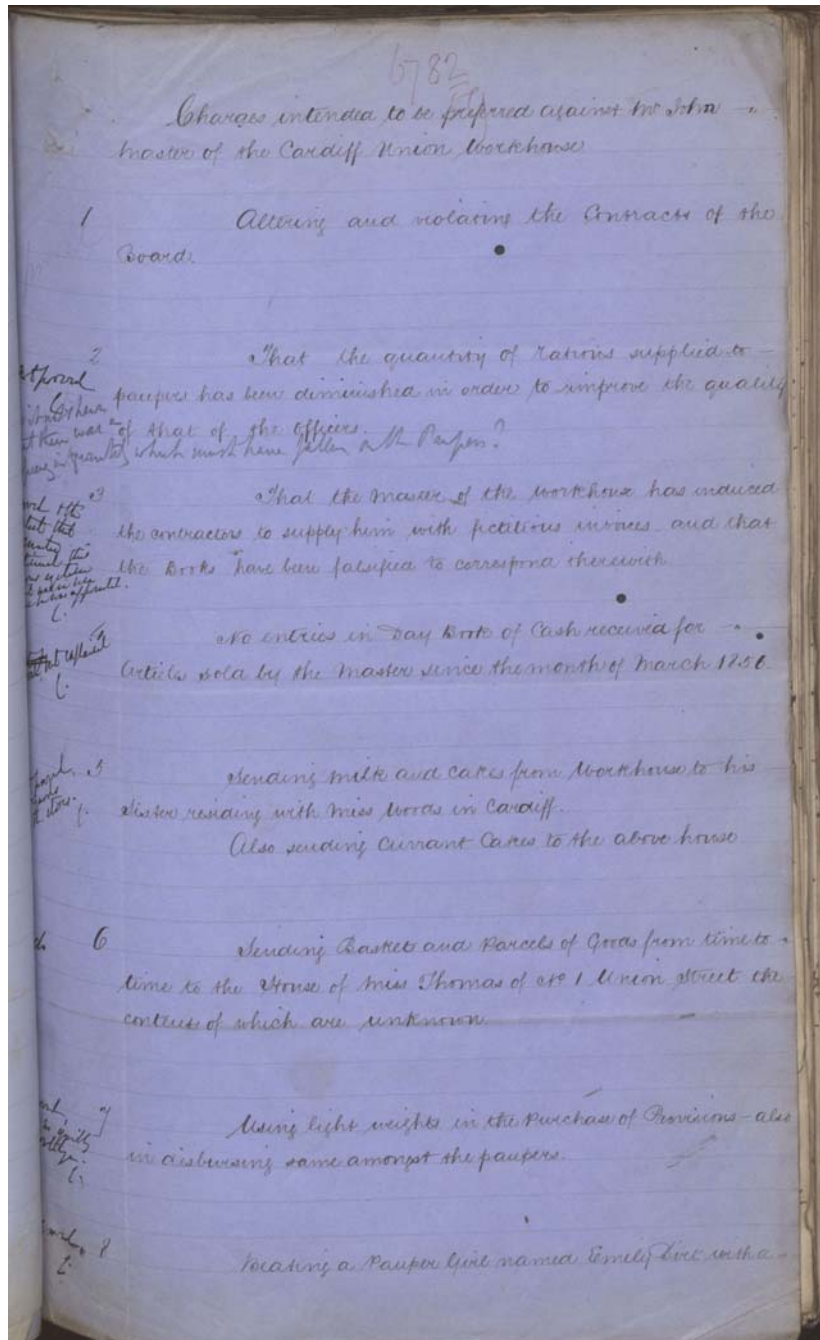 6782
Charges intended to be preferred against Mr John
Master of the Cardiff Union Workhouse
1 Altering and violating the Contracts of the
Board.
2 That the quantity of rations supplied to
paupers has been diminished in order to improve the quality
of that of the officers.
which must have fallen on the Paupers?
3 That the Master of the Workhouse has induced
the contractors to supply him with fictitious invoices and that
the Books have been falsified to correspond therewith
No entries in Day Book of Cash received for
Articles sold by the Master since the month of March 1856.
5 Sending milk and cakes from Workhouse to his
Sister residing with Miss Woods in Cardiff.
Also sending Currant Cakes to the above house
6 Sending Basket and Parcels of Goods from time to
time to the House of Miss Thomas of No 1 Union Street the
contents of which are unknown
7 Using light weights in the Purchase of Provisions - also
in disbursing same amongst the paupers.
8 Beating a Pauper Girl named Emily with a